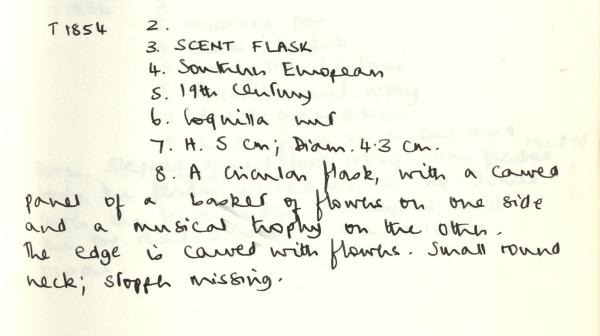 T 1854 2.
3. SCENT FLASK
4. Southern European
5. 19th Century
6. Coquilla nut
7. H. 5 cm; Diam. 4.3 cm.
8. A circular flask, with a carved
panel of a basket of flowers on one side
and a musical trophy on the other.
The edge is carved with flowers. Small round
neck; stopper missing.